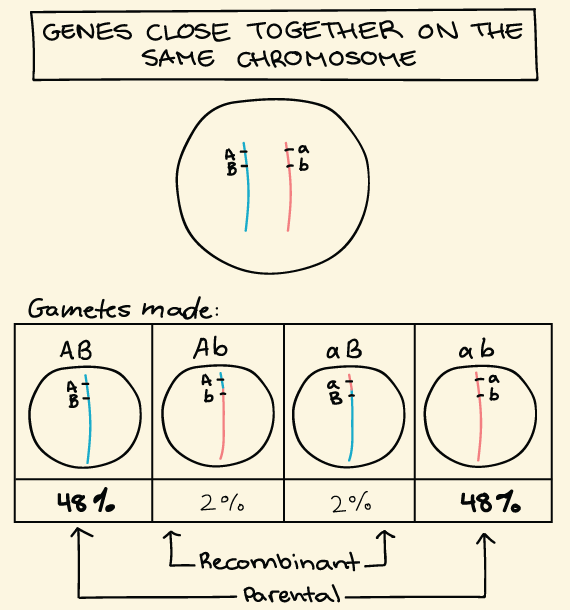 GENES CLOSE TOGETHER ON THE
SAME CHROMOSOME
A a
B b
Gametes made:
AB Ab aB ab
A A a a
B b B b
48% 2% 2% 48%
Recombinant
Parental